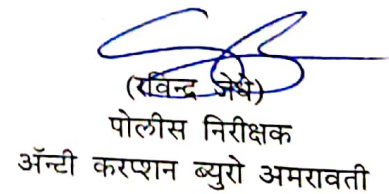 (रविन्द्र जेधे)
पोलीस निरीक्षक
ॲन्टी करप्शन ब्युरो अमरावती